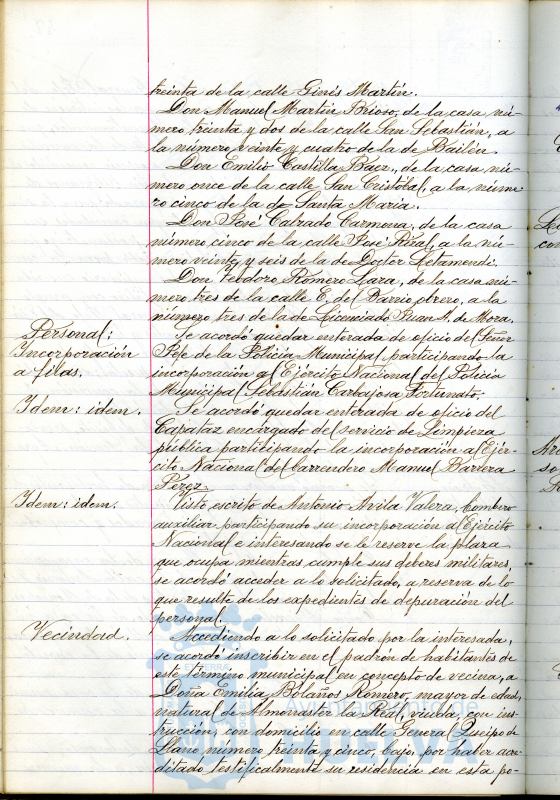 treinta de la calle Ginés Martín.
Don Manuel Martín Brioso, de la casa nú-
mero treinta y dos de la calle San Sebastián, a
la número veinte y cuatro de la de Bailén.
Don Emilio Castilla Baez, de la casa nú-
mero once de la calle San Cristóbal, a la núme-
ro cinco de la de Santa María.
Don José Calzado Carmona, de la casa
número cinco de la calle José Riral, a la nú-
mero veinte y seis de la de Doctor Letamendi.
Don Teodoro Romero Lara, de la casa nú-
mero tres de la calle E. del Barrio obrero, a la
número tres de la de Licenciado Juan A. de Mora.
Personal:
Incorporación
a filas.
Se acordó quedar enterada de oficio del Señor
Jefe de la Policía Municipal, participando la
incorporación al Ejército Nacional del Policía
Municipal Sebastián Carbajosa Fortunato.
Idem: idem.
Se acordó quedar enterada de oficio del
Capataz encargado del servicio de Limpieza
pública participando la incorporación al Ejér-
cito Nacional del barrendero Manuel Barrera
Pérez.
Idem: idem.
Visto escrito de Antonio Avila Valera, bombero
auxiliar participando su incorporación al Ejército
Nacional e interesando se le reserve la plaza
que ocupa mientras cumple sus deberes militares,
se acordó acceder a lo solicitado, a reserva de lo
que resulte de los expedientes de depuración del
personal.
Vecindad.
Accediendo a lo solicitado por la interesada,
se acordó inscribir en el padrón de habitantes de
este término municipal en concepto de vecina, a
Doña Emilia Bolaños Romero, mayor de edad,
natural de Almonaster la Real, viuda, con ins-
trucción, con domicilio en calle General Queipo de
Llano número treinta y cinco, bajo, por haber acre-
ditado testificalmente su residencia en esta po-
Ayuntamiento de
HUELVA